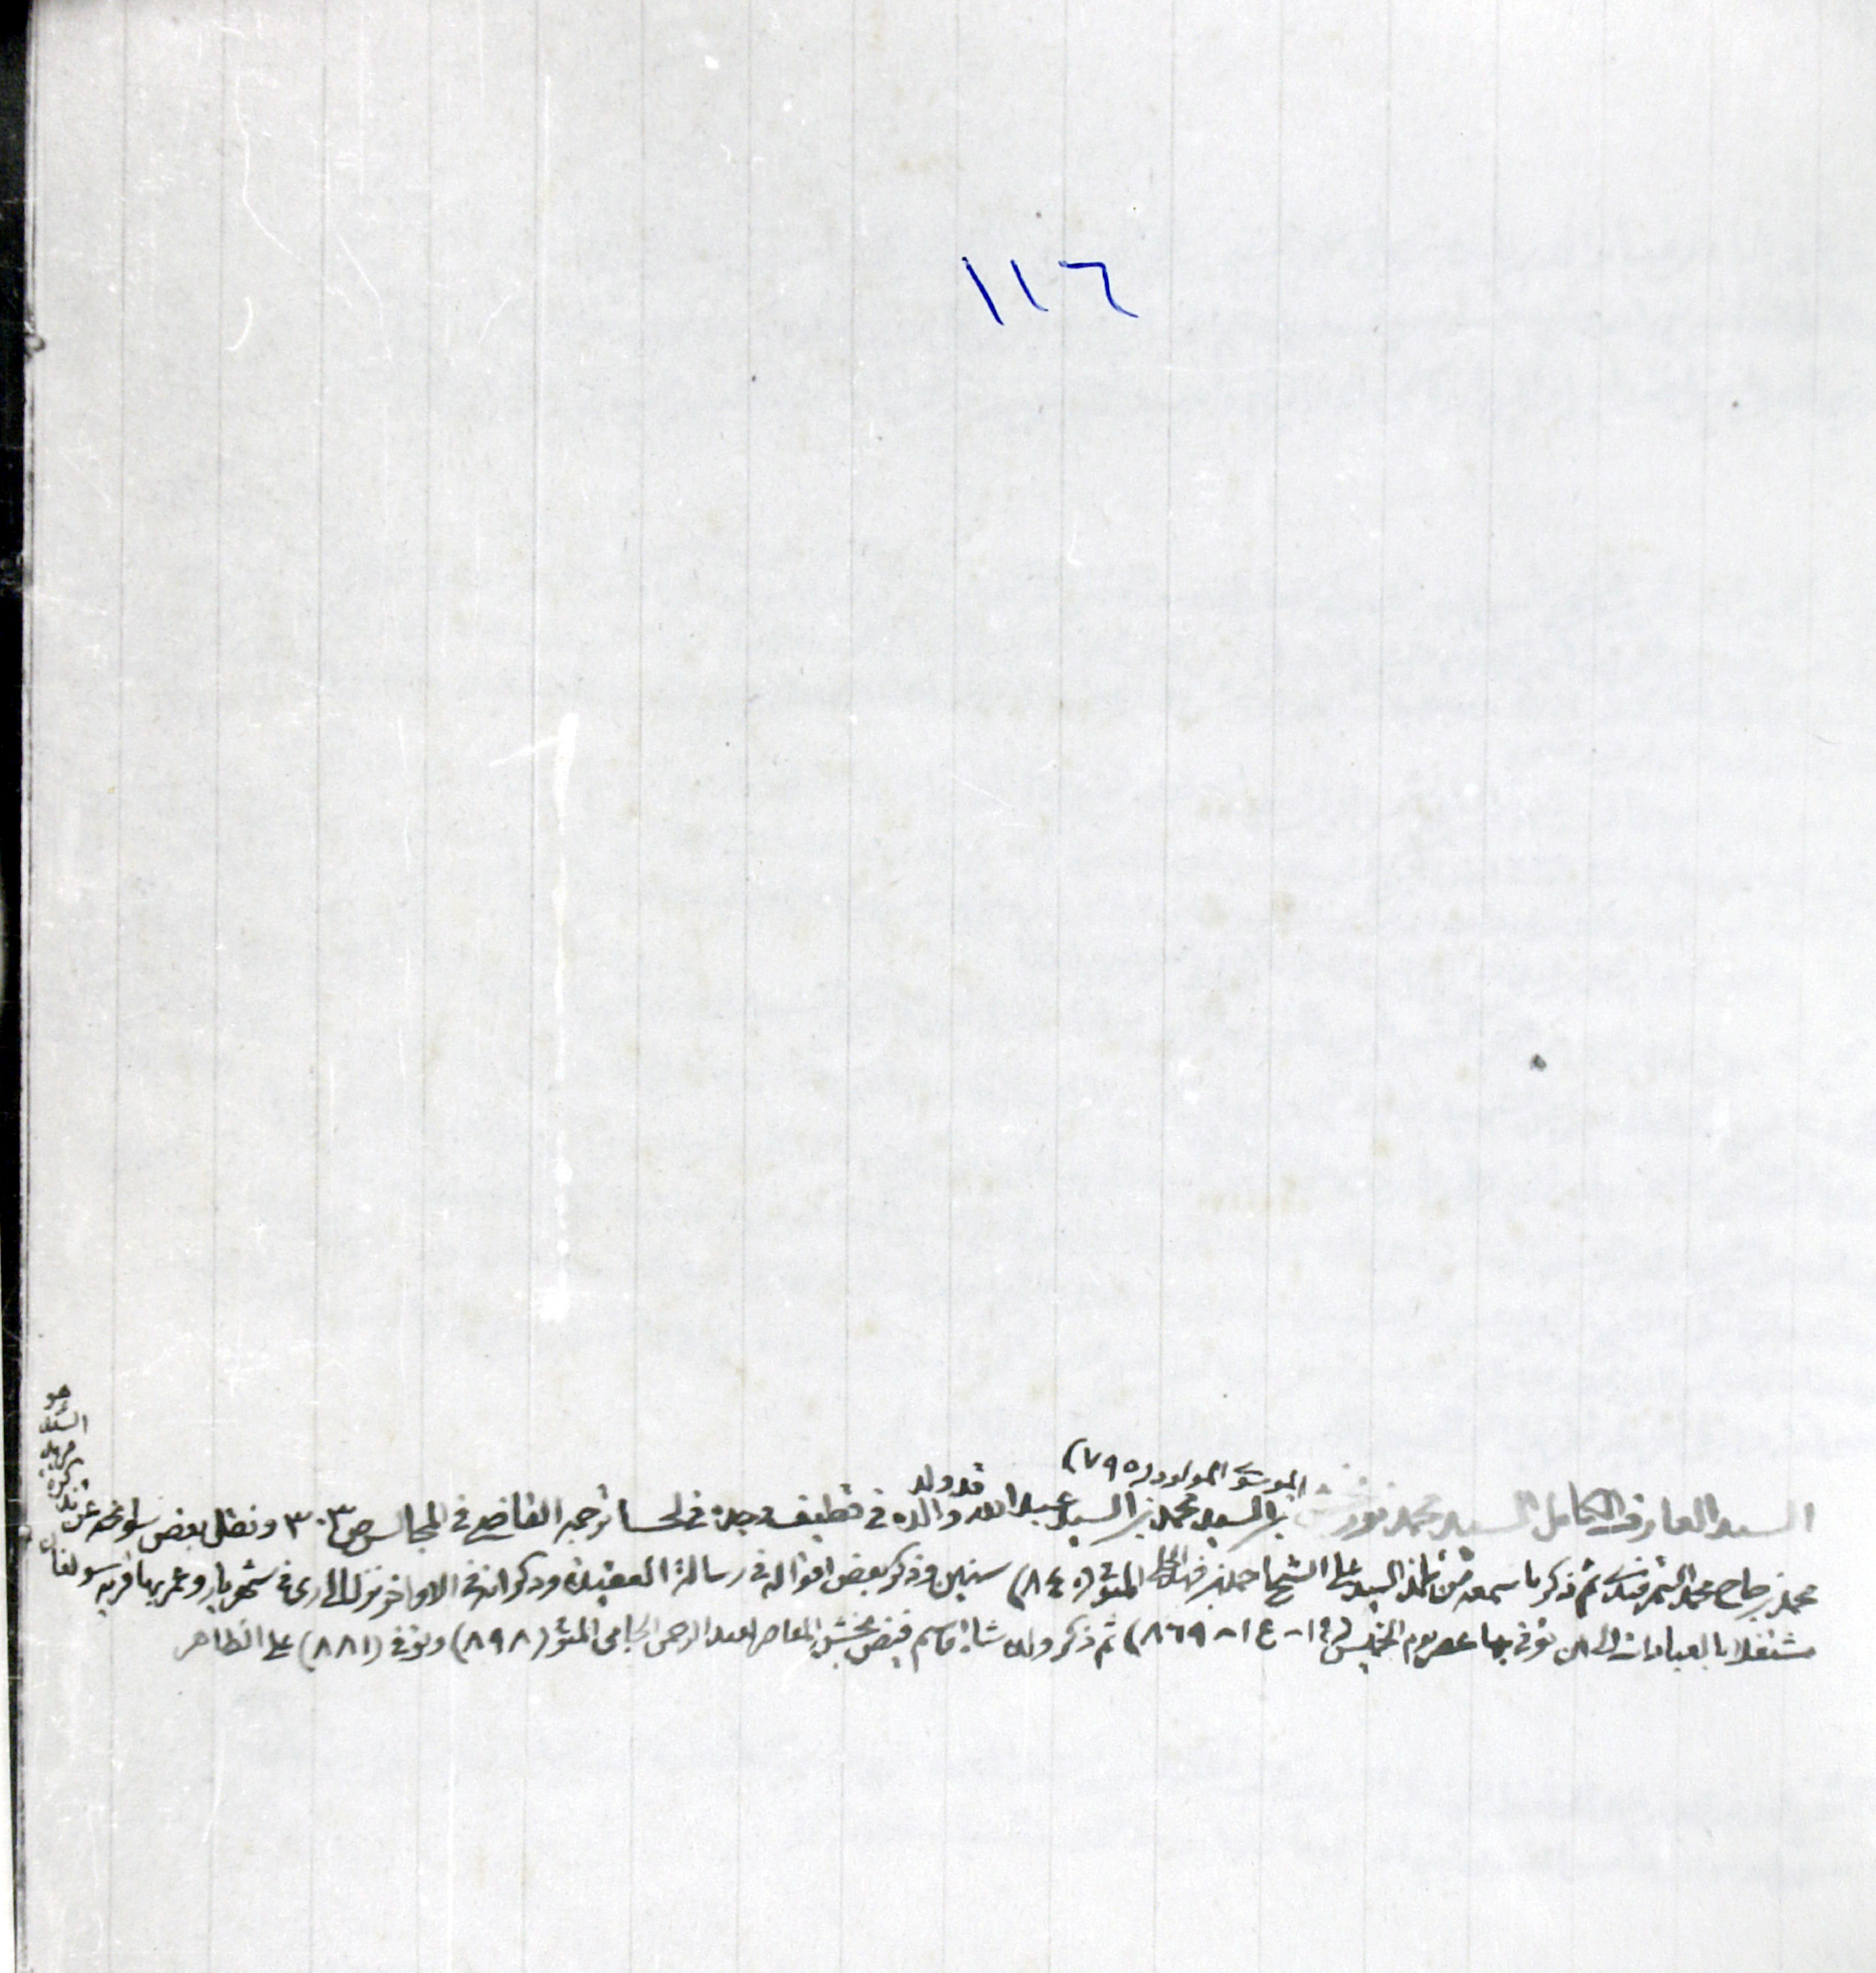 ١١٦
الموسوي المولود (٧٩٥)
السيد العارف الكامل السيد محمد نوربخش بن السيد محمد بن السيد عبد الله قد ولد والده في قطيف وجده في لحسا ترجمه القاضي في المجالس ص ٣٠٣ ونقل بعض سوانحه عن تذكرة
محمد بن حاج محمد السمرقندي ثم ذكر ما سمعه من تلمذ السيد على الشيخ احمد بن فهد الحلي المتوفى (٨٤٠) سنين وذكر بعض اقواله في رسالة العقيدة وذكر انه في الاواخر نزل الى الري في شهريار وعمر بها قرية سولغان
مشتغلا بالعبادات الى ان توفي بها عصر يوم الخميس (١٤-ع١-٨٦٩) ثم ذكر ولده شاه قاسم فيض بخش المعاصر لعبد الرحمن الجامي المتوفى (٨٩٨) وتوفي (٨٨١) على الظاهر
هو
السيد